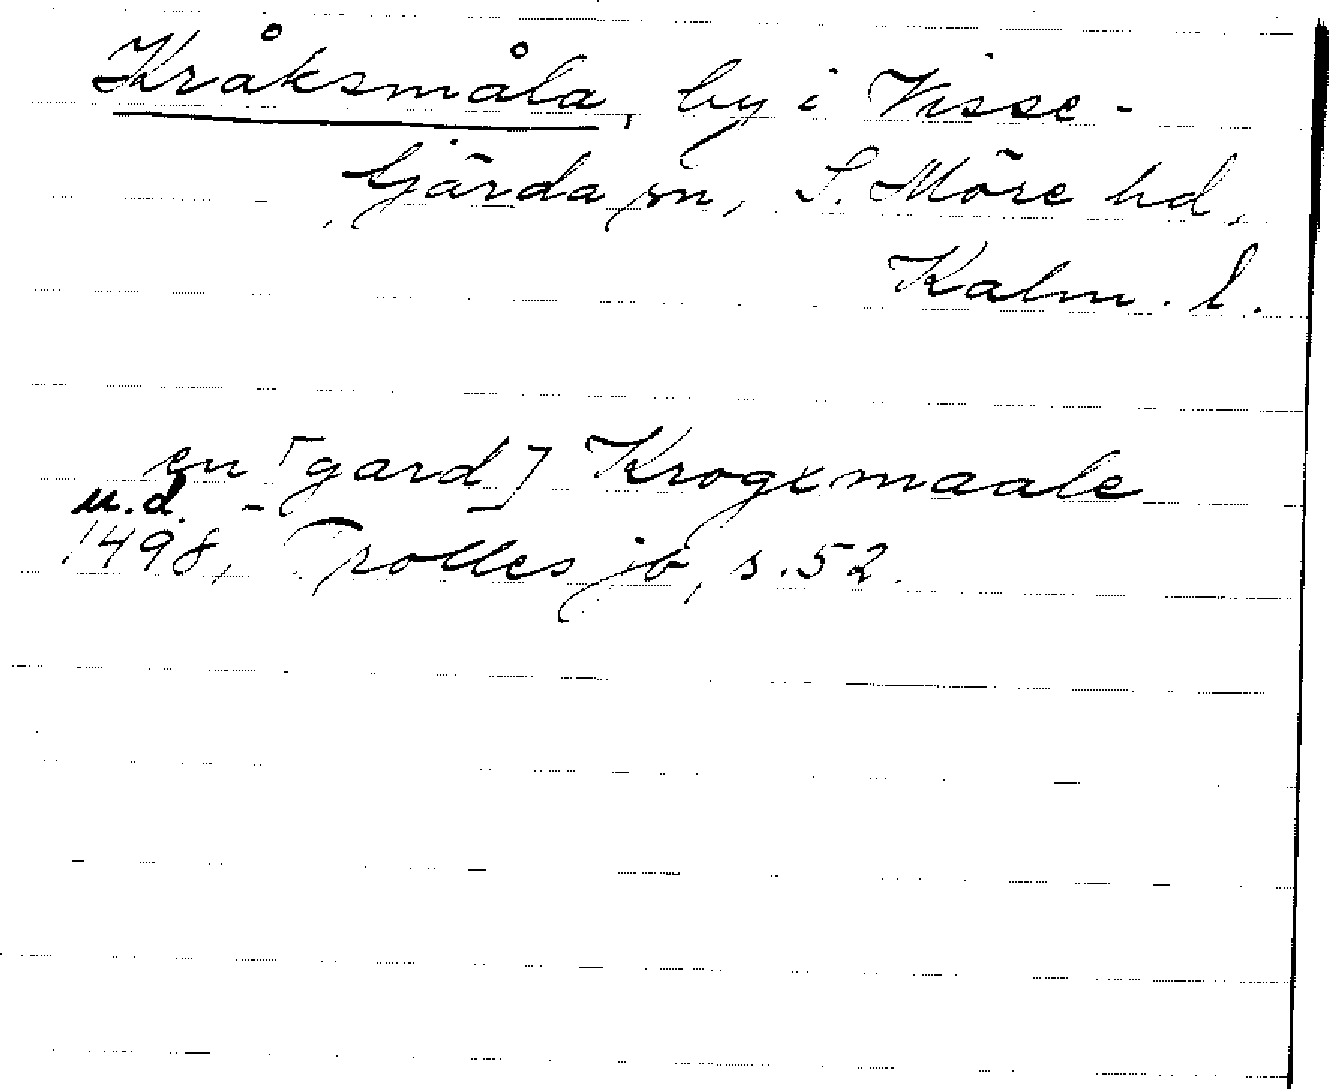 Kråksmåla, by i Visse-
fjärda sn, S. Möre hd,
Kalm. l.
en [gard] Krogxmaale
u.d.
1498, Trolles jb, s. 52.